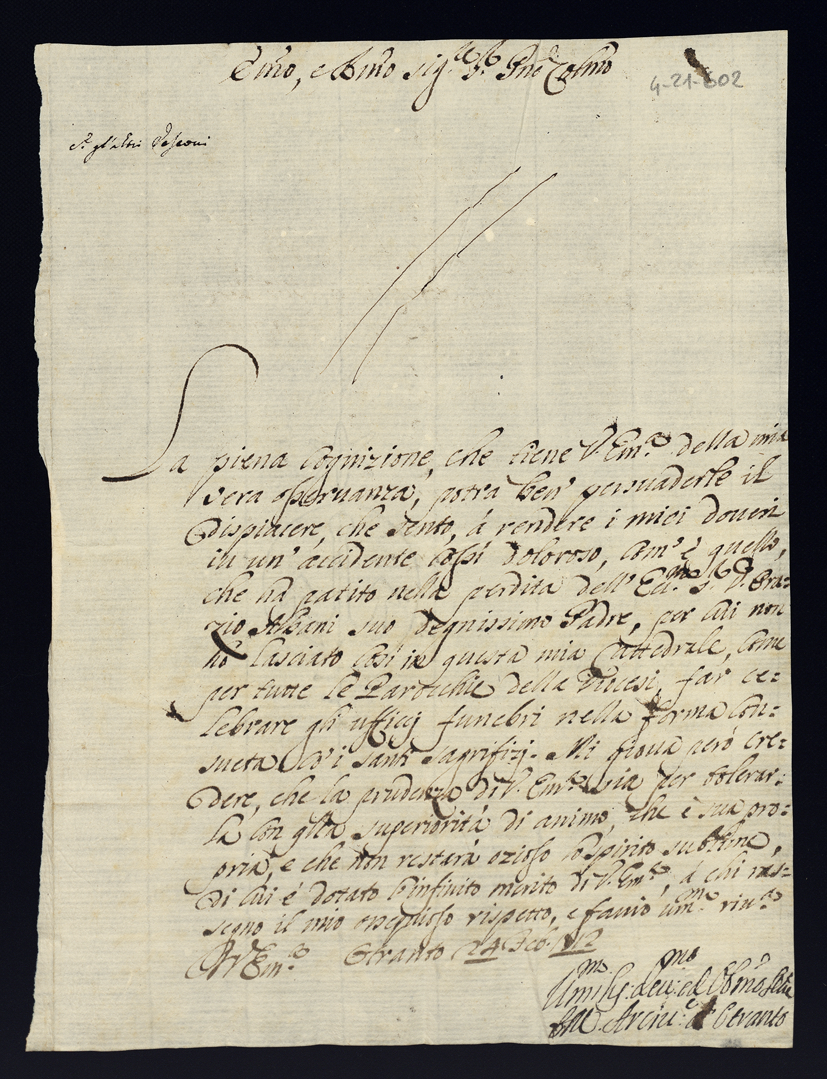 Emo, e Rmo Sig.r P.ne Colmo
4-21-602
La piena cognizione, che tiene V. Em.a della mia
vera osseruanza, potrà ben' persuaderle il
dispiacere, che sento, à rendere i miei doueri
in un' accidente cossì doloroso, com' è quello,
che hà patito nella perdita dell' Ecc.mo S.r D. Ora=
zio Albani suo degnissimo Padre, per cui non
hò lasciato così in questa mia Cattedrale, come
per tutte le Parocchie della Diocesi, far ce=
lebrare gli ufficij funebri nella forma con=
sueta co' i santi sagrifizj. Mi gioua però cre=
dere, che la prudenza di V. Em.a sia per tolerar=
la con q.lla superiorità di animo, che è sua pro=
pria, e che non restarà ozioso lo spirito sublime,
di cui è dotato l'infinito merito di V. Em.a, à chi ras=
segno il mio ossequioso rispetto, e faccio um.te riu.za
D V Em.a Otranto 24 Feb. 1712
Umilis.mo deu.mo ed Obmo
Arciu.o d' Otranto